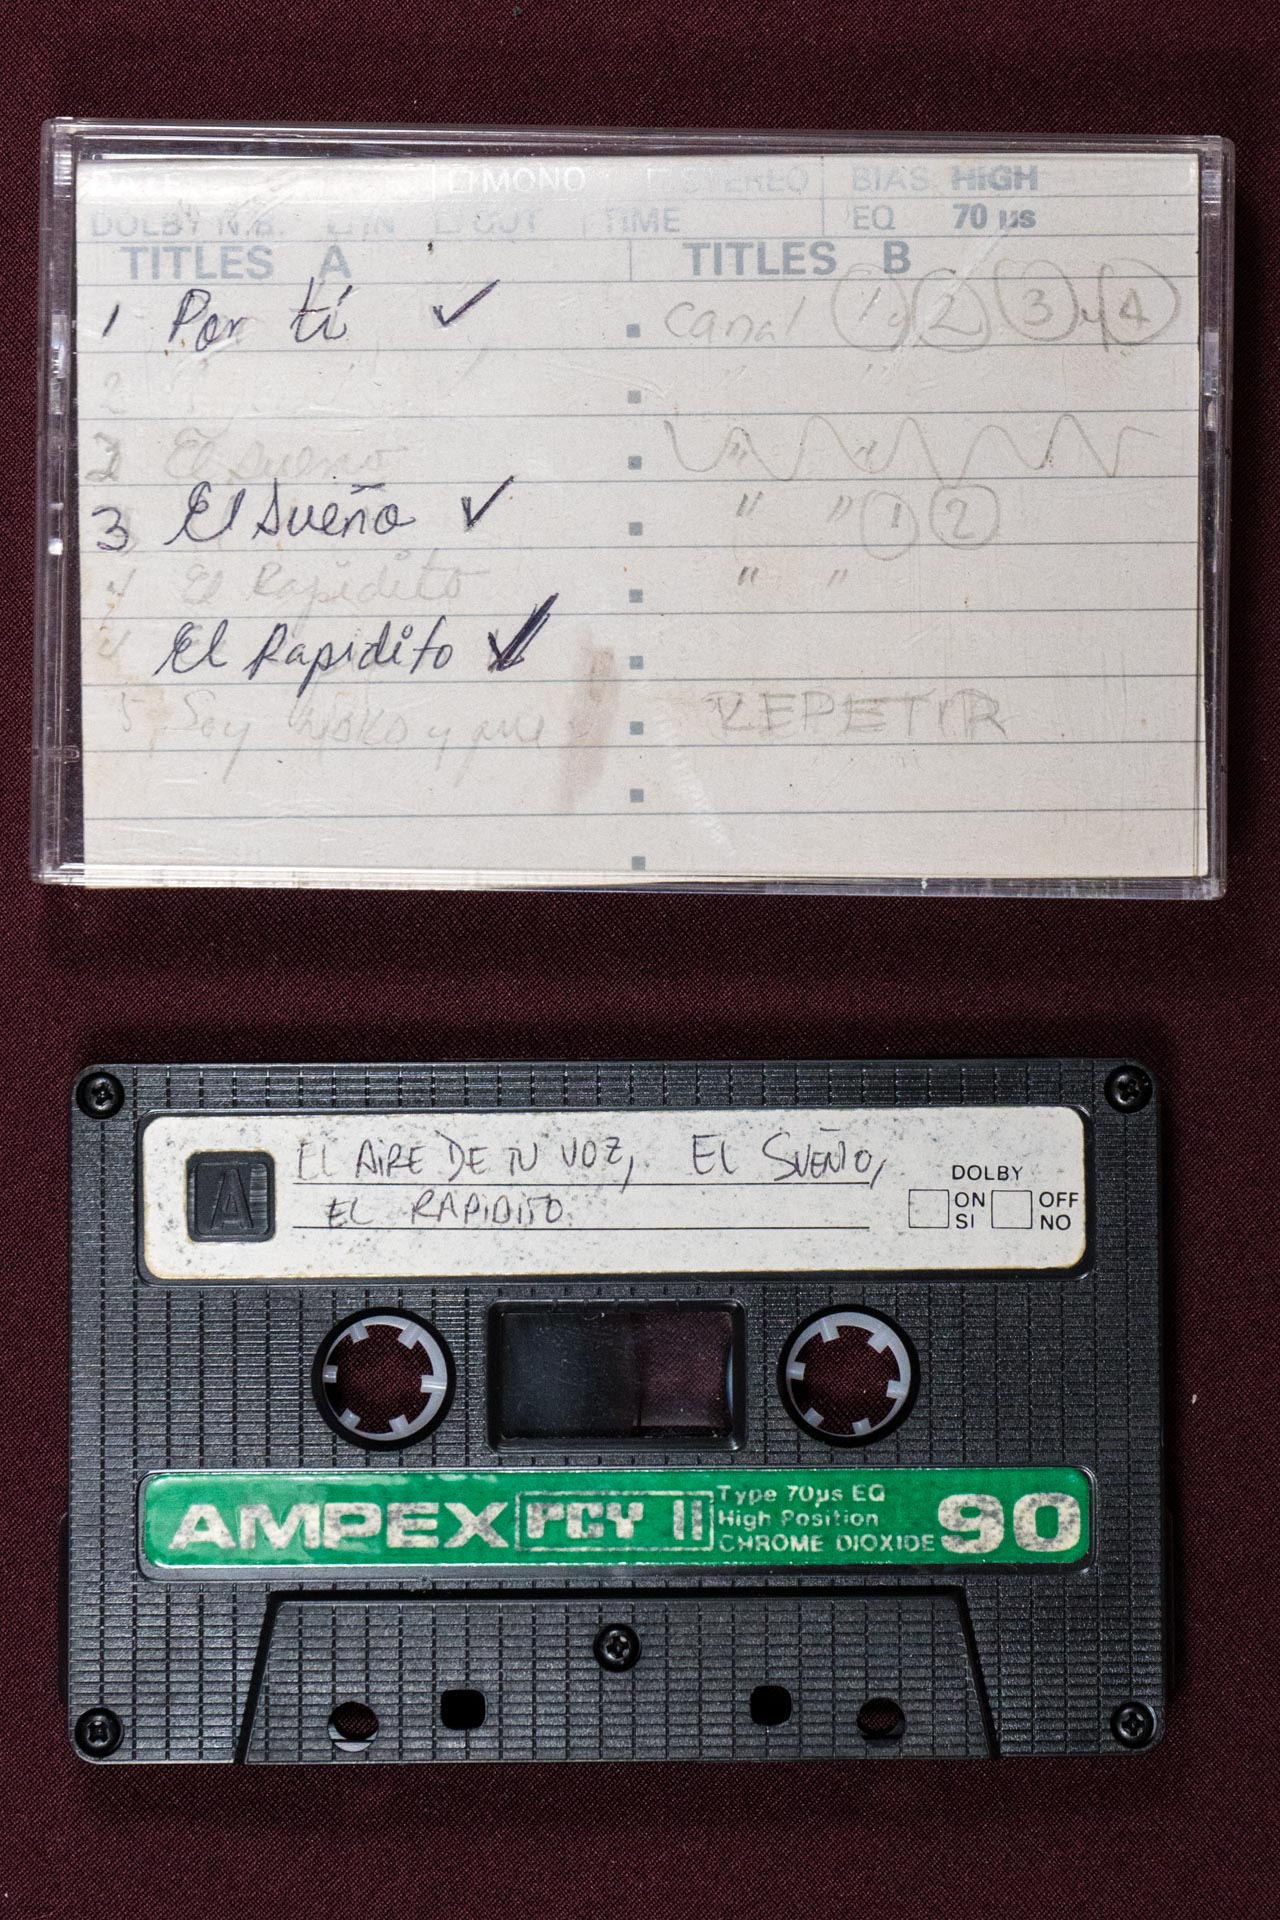 MONO STEREO BIAS HIGH
DOLBY N.R. IN OUT TIME EQ 70 µs
TITLES A TITLES B
1 Por ti ✓ Canal 1 y 2 3 y 4
2 " "
3 El sueño " "
3 El Sueño ✓ " " 1 2
4 El Rapidito " "
4 El Rapidito ✓
5 Soy y que REPETIR
A
EL AIRE DE TU VOZ, EL SUEÑO,
EL RAPIDITO.
DOLBY
ON OFF
SI NO
AMPEX PCY II Type 70µs EQ
High Position
CHROME DIOXIDE 90